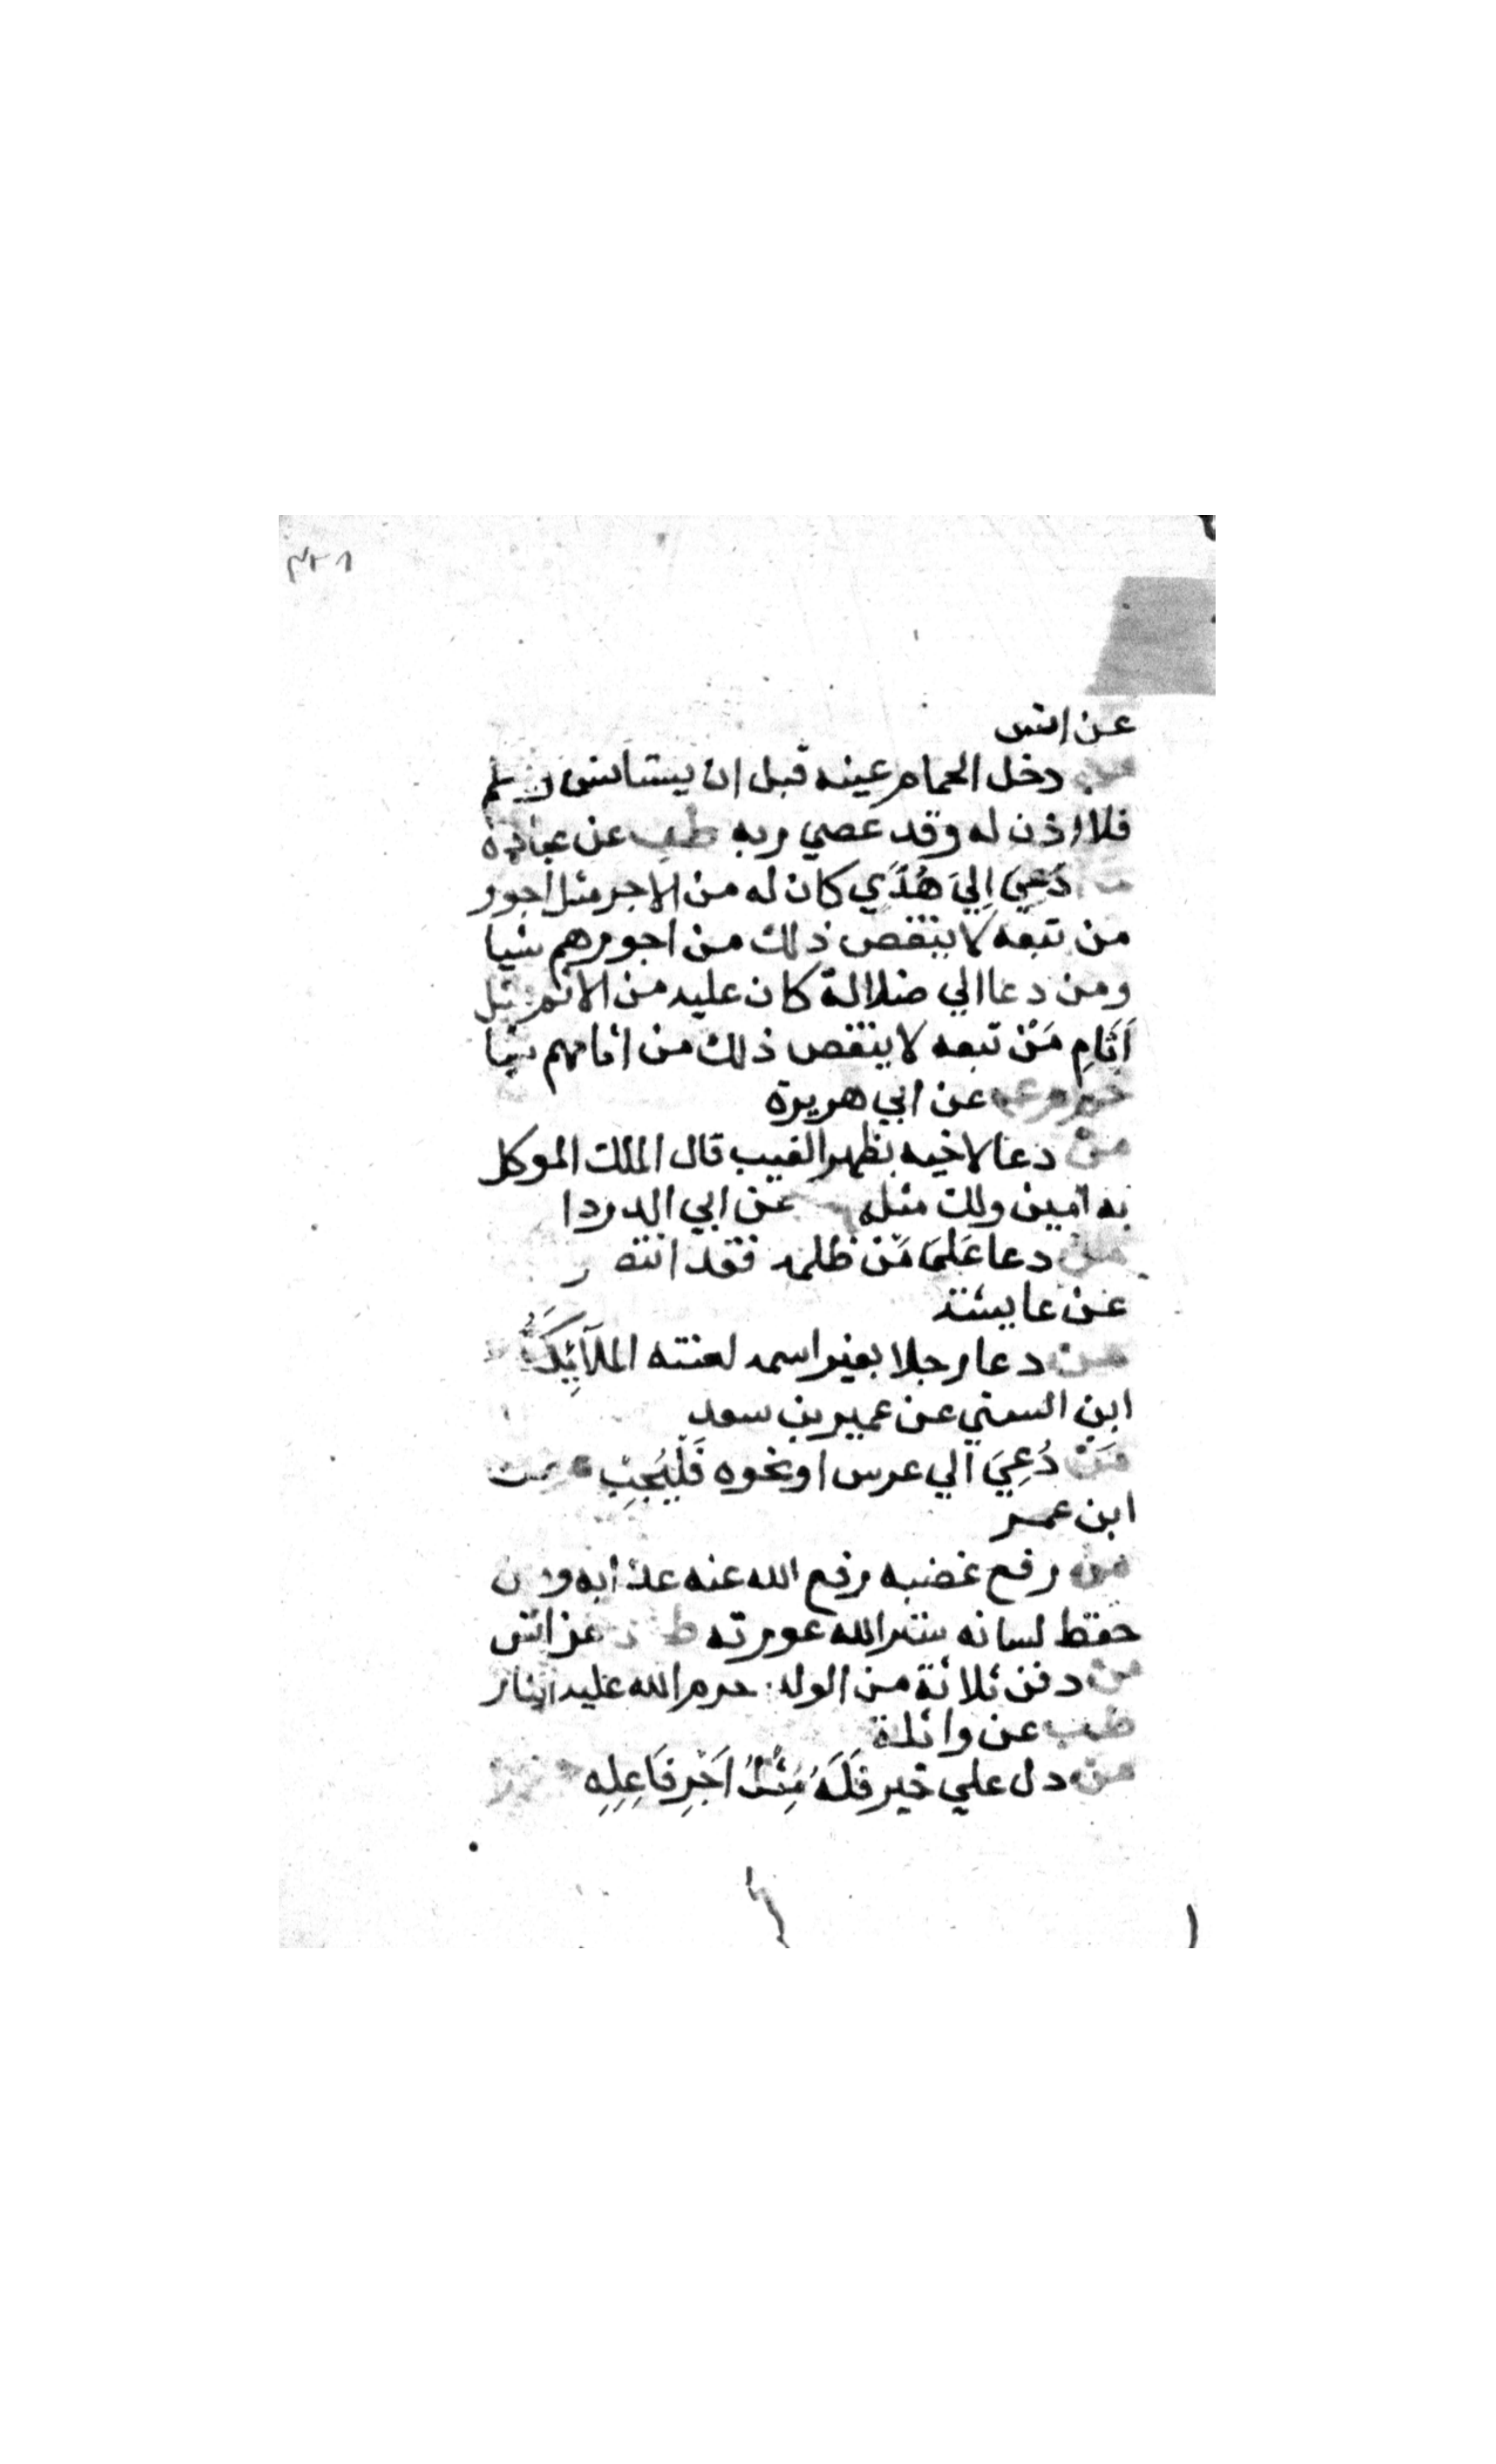 ٣٢١
عن انس
من دخل الحمام عينه قبل ان يستانس ويسلم
فلا اذن له وقد عصي ربه طب عن عبادة
دَعِيَ اِليَ هُدًي كان له من الاجر مثل اجور
من تبعه لا ينقص ذلك من اجورهم شيا
ومن دعا الي ضلالة كان عليه من الاثم مثل
اَثَامِ مَنْ تبعه لا ينقص ذلك من اثامهم شيا
عن ابي هريرة
من دعا لاخيه بظهر الغيب قال الملك الموكل
به امين ولك مثله عن ابي الدردا
من دعا عَلَيَ مَنْ ظلمه فقد انتصر
عن عايشة
من دعا رجلا بغير اسمه لعنته الملآئِكَةُ
ابن السني عن عمير بن سعد
مَنْ دُعِيَ الي عرس او نحوه فَلْيُجِبْ عن
ابن عمر
من رفع غضبه رفع الله عنه عذابه ومن
حفظ لسانه ستر الله عورته ط عن انس
من دفن ثلاثة من الولد حرم الله عليه النار
طب عن واثلة
من دل علي خير فَلَهُ مِثْلُ اَجْرِ فَاعِلِهِ